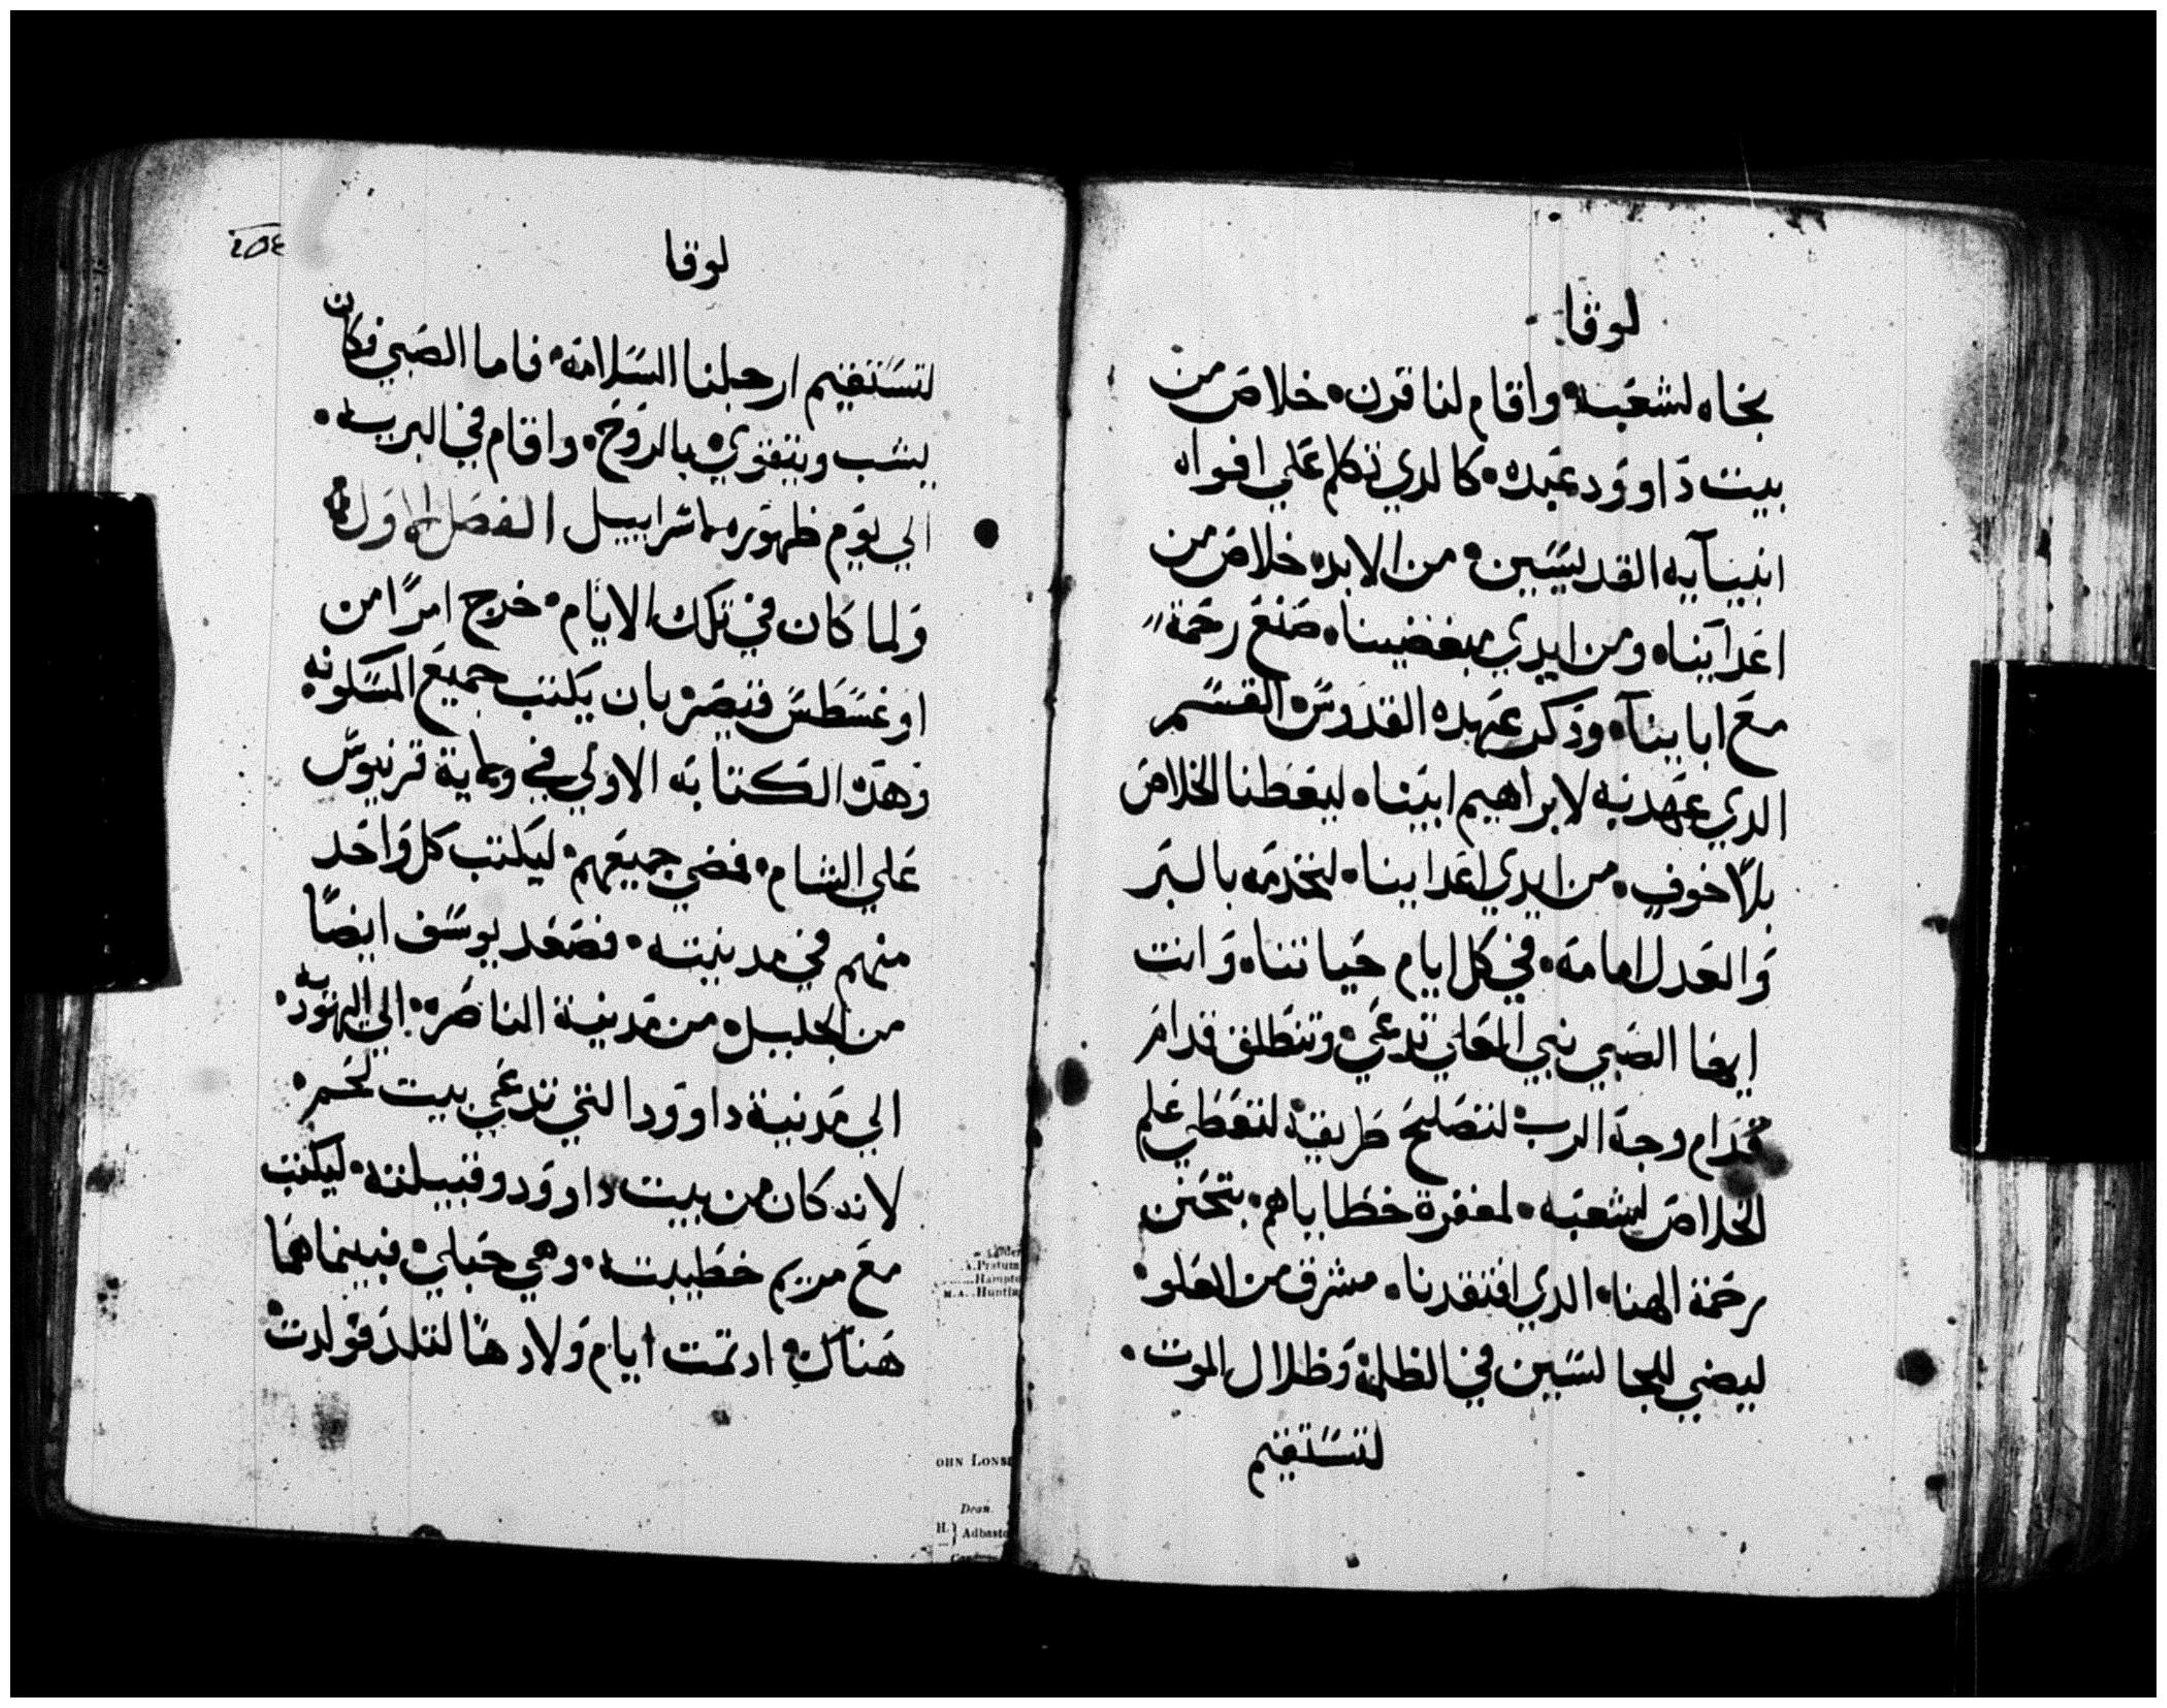 لوقا
نجاه لشعبه واقام لنا قرن خلاص من
بيت داوود عبده كالدي تكلم علي افواه
انبيآيه القديسين من الابد خلاص من
اعدآينا ومن ايدي مبغضينا صنع رحمة
مع اباينآ ودكر عهده القدوس القسم
الدي عهد به لابراهيم ابينا ليعطنا الخلاص
بلا خوف من ايدي اعداينا لنخدمه بالبر
والعدل امامه في كل ايام حياتنا وانت
ايها الصبي نبي العلي تدعي وتنطلق قدام
قدام وجه الرب لتصلح طريقه لتعطي علم
الخلاص لشعبه لمغفرة خطاياهم بتحنن
رحمة الهنا الدي افتقدنا مشرق من العلو
ليضي للجالسين في الظلمة وظلال الموت
لتستقيم
٢٥٤
لوقا
لتستقيم ارجلنا السلامه فاما الصبي فكان
يشب ويتقوي بالروح واقام في البريه
الي يوم ظهوره لاسراييل الفصل الاول
ولما كان في تلك الايام خرج امرا من
اوغسطس قيصر بان يكتب جميع المسكونه
وهده الكتابه الاولي في ولاية قرنيوس
علي الشام فمضي جميعهم ليكتب كل واحد
منهم في مدينته فصعد يوسف ايضا
من الجليل من مدينة الناصره الي اليهوديه
الي مدينة داوود التي تدعي بيت لحم
لانه كان من بيت داوود وقبيلته ليكتب
مع مريم خطيبته وهي حبلي فبينما هما
هناك ادتمت ايام ولادها لتلد فولدت
OHN LONS
Dean.
H.} Adbasto
A. Pratum
Hampto
M.A. Huntin